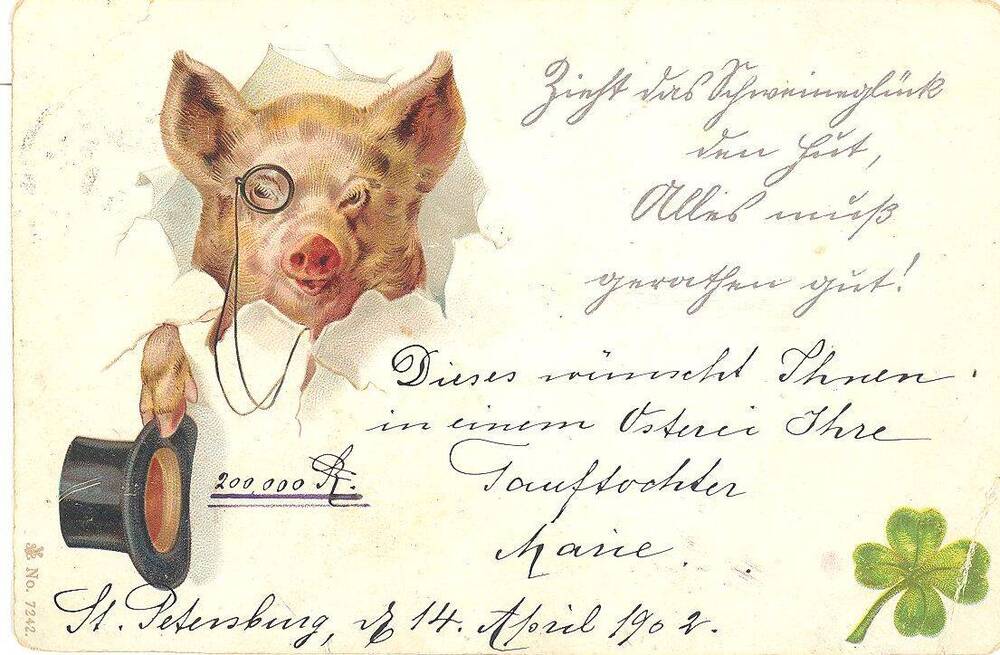 Zieht das Schweineglück
den Hut,
Alles muß
gerathen gut!
Dieses wünscht Ihnen
in einem Osterei Ihre
Tauftochter
Marie.
200,000 R.
St. Petersburg, d 14. April 1902.
No. 7242.